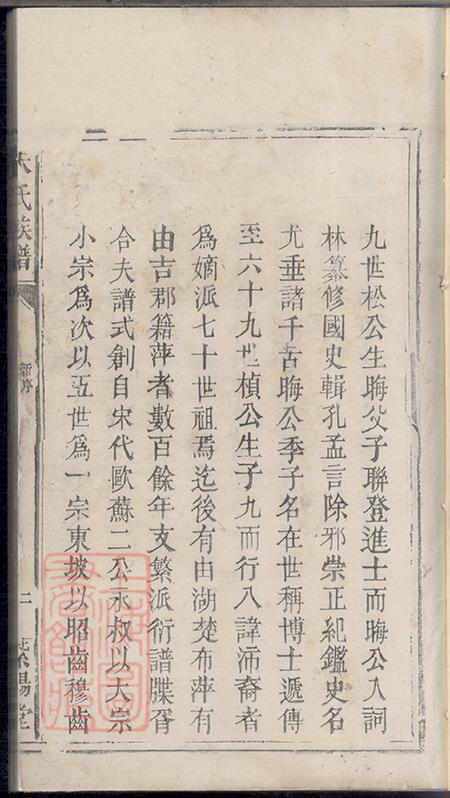 九世松公生晦父子聯登進士而晦公入詞
林纂修國史輯孔孟言除邪崇正紀鑑史名
尤垂諸千古晦公季子名在世稱博士遞傳
至六十九世楨公生子九而行八諱沛裔者
為嫡派七十世祖焉迄後有由湖楚布萍有
由吉郡籍萍者數百餘年支繁派衍譜牒胥
合夫譜式創自宋代歐蘇二公永叔以大宗
小宗為次以五世為一宗東坡以昭齒穆齒
氏族譜
新序
二
陽堂